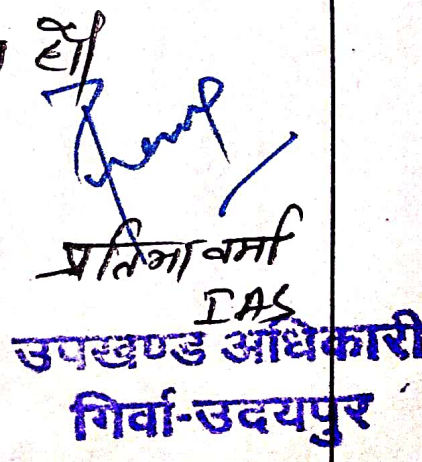 हो।
प्रतिभा वर्मा
IAS
उपखण्ड अधिकारी
गिर्वा-उदयपुर